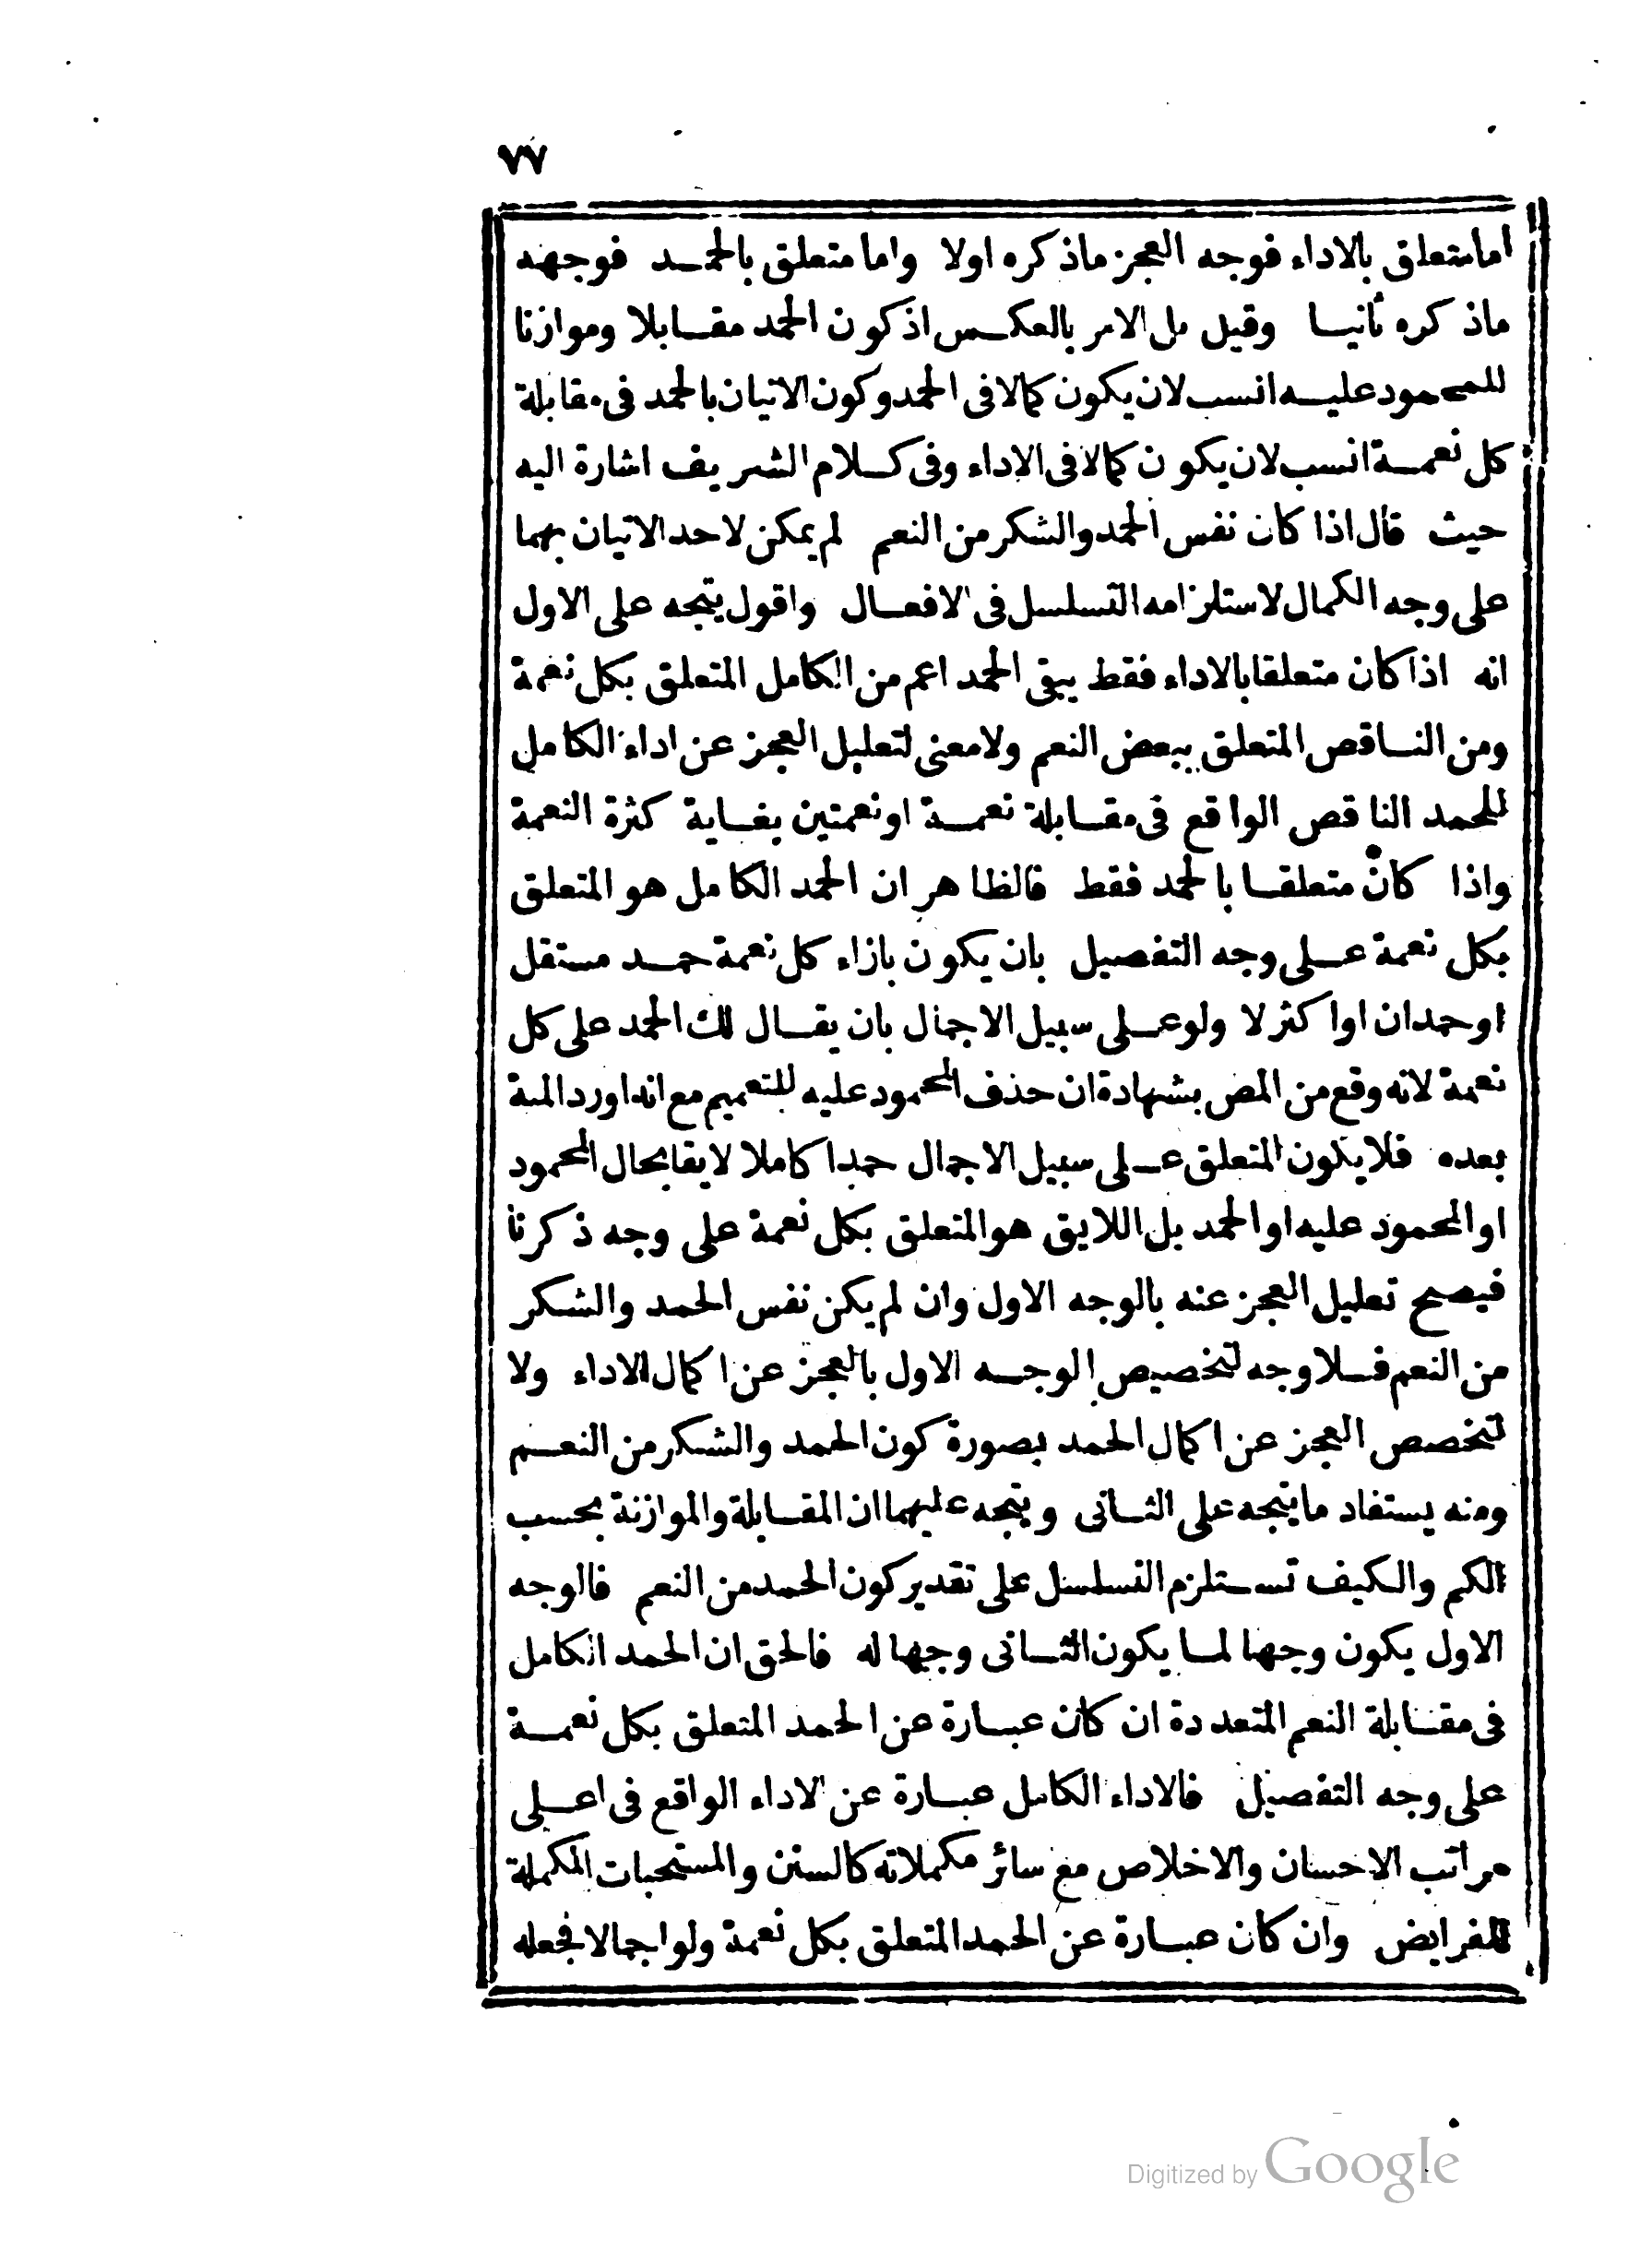 ٧٧
اما متعلق بالاداء فوجه العجز ماذكره اولا واما متعلق بالحمد فوجهه
ماذكره ثانيا وقيل بل الامر بالعكس اذكون الحمد مقابلا وموازنا
للمحمود عليه انسب لان يكون كمالا فى الحمد وكون الاتيان بالحمد فى مقابلة
كل نعمة انسب لان يكون كمالا فى الاداء وفى كلام الشريف اشارة اليه
حيث قال اذا كان نفس الحمد والشكر من النعم لم يمكن لاحد الاتيان بهما
على وجه الكمال لاستلزامه التسلسل فى الافعال واقول يتجه على الاول
انه اذا كان متعلقا بالاداء فقط يبقى الحمد اعم من الكامل المتعلق بكل نعمة
ومن الناقص المتعلق ببعض النعم ولا معنى لتعليل العجز عن اداء الكامل
للحمد الناقص الواقع فى مقابلة نعمة او نعمتين بغاية كثرة النعمة
واذا كان متعلقا بالحمد فقط فالظاهر ان الحمد الكامل هو المتعلق
بكل نعمة على وجه التفصيل بان يكون بازاء كل نعمة حمد مستقل
او حمدان او اكثر لا ولو على سبيل الاجمال بان يقال لك الحمد على كل
نعمة لانه وقع من المص بشهادة ان حذف المحمود عليه للتعميم مع انه اورد المبة
بعده فلا يكون المتعلق على سبيل الاجمال حمدا كاملا لايقا بحال المحمود
او المحمود عليه او الحمد بل اللايق هو المتعلق بكل نعمة على وجه ذكرنا
فيصح تعليل العجز عنه بالوجه الاول وان لم يكن نفس الحمد والشكر
من النعم فلا وجه لتخصيص الوجه الاول بالعجز عن اكمال الاداء ولا
لتخصص العجز عن اكمال الحمد بصورة كون الحمد والشكر من النعم
ومنه يستفاد ما يتجه على الثانى ويتجه عليهما ان المقابلة والموازنة بحسب
الكم والكيف تستلزم التسلسل على تقدير كون الحمد من النعم فالوجه
الاول يكون وجها لما يكون الثانى وجها له فالحق ان الحمد الكامل
فى مقابلة النعم المتعددة ان كان عبارة عن الحمد المتعلق بكل نعمة
على وجه التفصيل فالاداء الكامل عبارة عن الاداء الواقع فى اعلى
مراتب الاحسان والاخلاص مع سائر مكملاته كالسنن والمستحبات المكملة
للفرايض وان كان عبارة عن الحمد المتعلق بكل نعمة ولو اجمالا فجعله
Digitized by Google